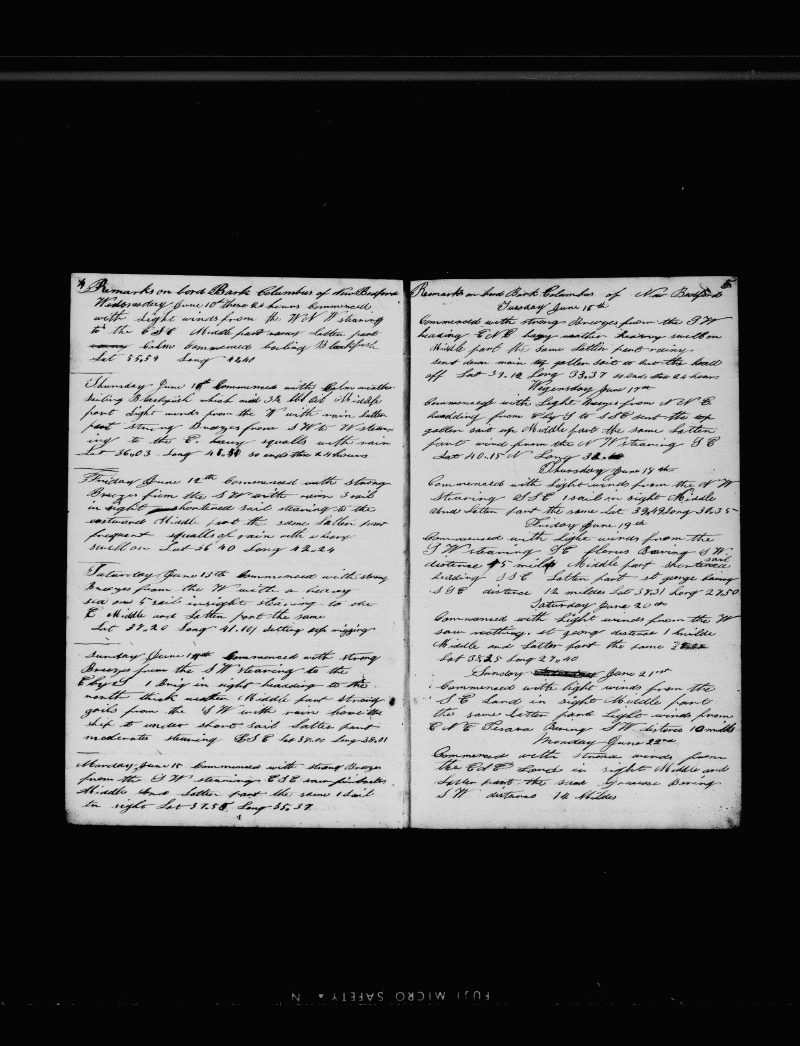 4 Remarks on bord Bark Columbus of New Bedford
Wednesday June 10th these 24 hours Commenced
with Light winds from the WNW stearing
to the ESE Middle part Latter part
Calm Commenced boiling Blackfish
Lat 35,59 Long 43,40
Thursday June 11th Commenced with Calm weather
Boiling Blackfish which mad 32 bbl oil Middle
part Light winds from the W with rain Latter
part strong Breezes from SW to W stear
ing to the E. heavy squalls with rain
Lat 36,03 Long so ends these 24 hours
Friday June 12th Commenced with strong
Breezes from the SW with rain 3 sail
in sight shortened sail stearing to the
eastward Middle part the same Latter part
frequent squalls of rain with a heavy
swell on Lat 36 40 Long 42.24
Saturday June 13th Commenced with strong
Breezes from the W with a heavy
sea on 5 sail insight stearing to the
E Middle and Latter part the same
Lat 37,20 Long 41.101 setting up rigging
Sunday June 14th Commenced with strong
Breezes from the SW stearing to the
E by S 1 Brig in sight headding to the
north thick weather Middle part strong
gails from the SW with rain hove the
ship to under short sail Latter part
moderate stearing ESE Lat 38.00 Long 38.01
Monday June 15 Commenced with strong Breezes
from the SW stearing ESE saw finbacks
Middle and Latter part the same 1 sail
in sight Lat 37.58 Long 35,37
Remarks on bord Bark Columbus of New Bedford 5
Tuesday June 16th
Commenced with strong Breezes from the SW
heading ENE weather swell on
Middle part the same Latter part rainy
send down main top gallen sail to bet the
off Lat 39.12 Long 33,37 so ends these 24 hours
Wigensday June 17th
Commenced with Light Breezes from NNE
headding from E by S to SSE sent the top
gallen sail up Middle part the same Latter
part wind from the NW stearing SE
Lat 40.15 N Long
Thursday June 18th
Commenced with Light winds from the NW
Stearing SSE 1 sail in sight Middle
and Latter part the same Lat 39,49 Long 30,35
Friday June 19th
Commenced with Light winds from the
SW stearing SE flores Baring SW
distence 45 miles Middle part shortened sail
hedding SSE Latter part st gorge baring
SSE distence 12 mildes Lat 38.31 Long 27.50
Saturday June 20th
Commenced with Light winds from the W
saw nothing, st georg distence 1 milde
Middle and Latter part the same
Lat 38.25 Long 27,40
Sunday June 21st
Commenced with light winds from the
SE Land in sight Middle part
the same Latter part Light winds from
ENE Baring SW distence 10 milds
Monday June 22nd
Commenced with winds from
the ENE Land in sight Middle and
Latter part the same Bering
SW distence 14 Mildes
FUJI MICRO SAFETY ▲ N